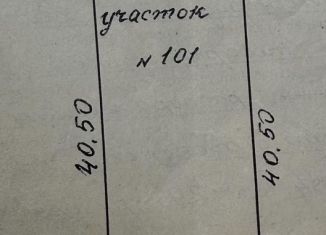 участок
№ 101
40,50
40,50